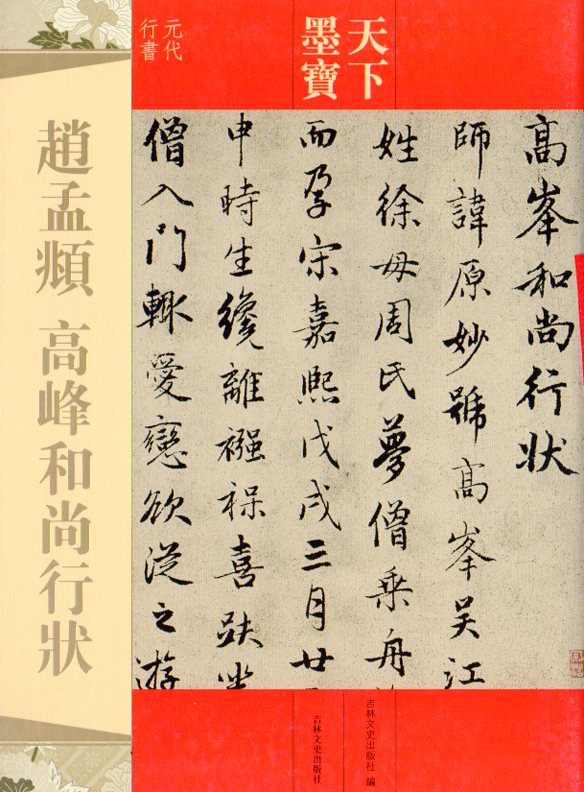 天下
墨寶
元代
行書
趙孟頫 高峰和尚行狀
高峯和尚行状
師諱原妙號高峯吴江
姓徐母周氏夢僧乘舟
而孕宋嘉熙戊戌三月廿
申時生纔離襁褓喜趺坐
僧入門輙愛戀欲従之遊
吉林文史出版社 編
吉林文史出版社